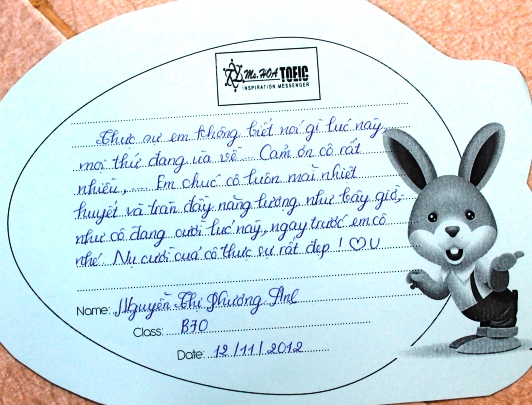 Ms. HOA TOEIC
INSPIRATION MESSENGER
Thực sự em không biết nói gì lúc này,
mọi thứ đang ùa về... Cảm ơn cô rất
nhiều,.... Em chúc cô luôn mãi nhiệt
huyết và tràn đầy năng lượng như bây giờ,
như cô đang cười lúc này, ngay trước em cô
nhé. Nụ cười của cô thực sự rất đẹp! ♡U
Name: Nguyễn Thị Phương Anh
Class: B70
Date: 12/11/2012